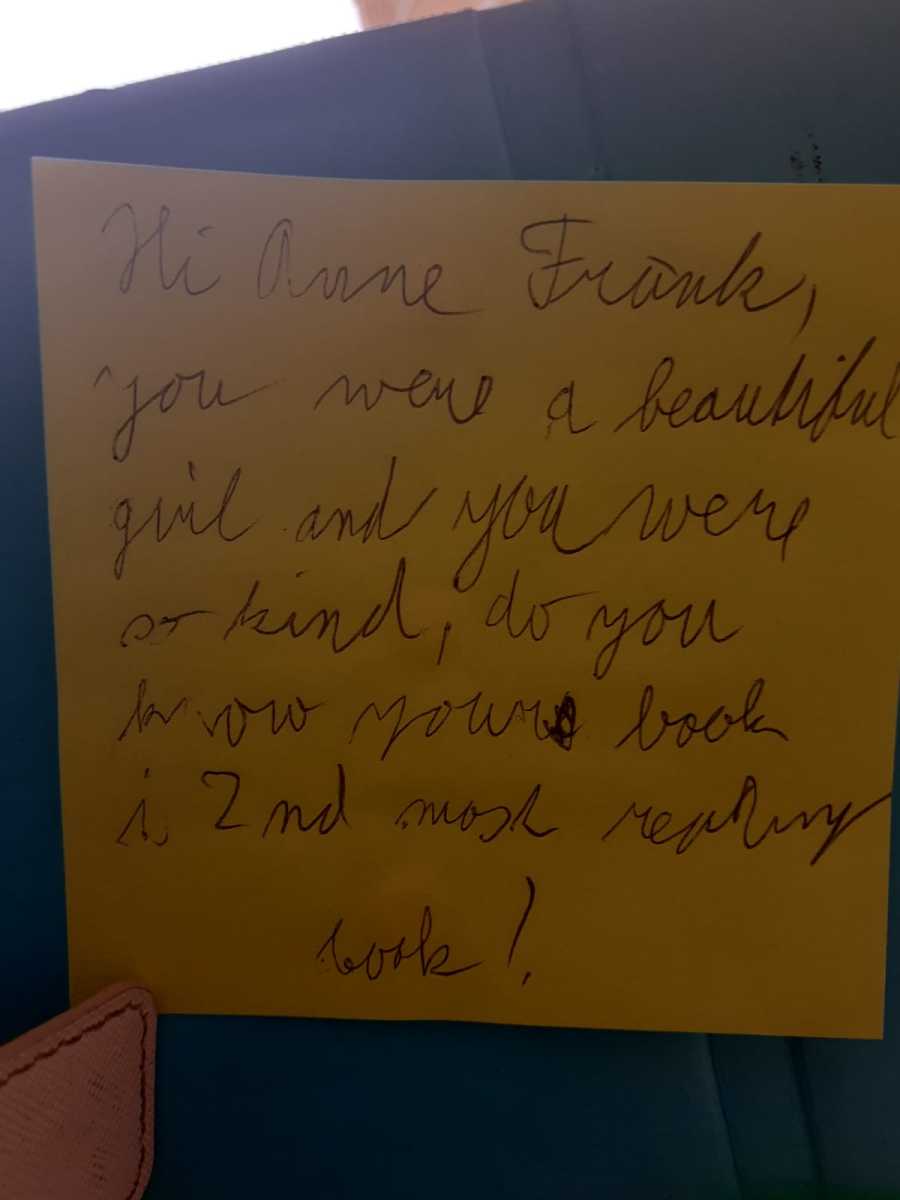 Hi Anne Frank,
you were a beautiful
girl and you were
so kind, do you
know your book
is 2nd most reading
book!